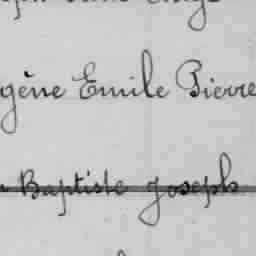 gène Emile Pierre
Baptiste Joseph